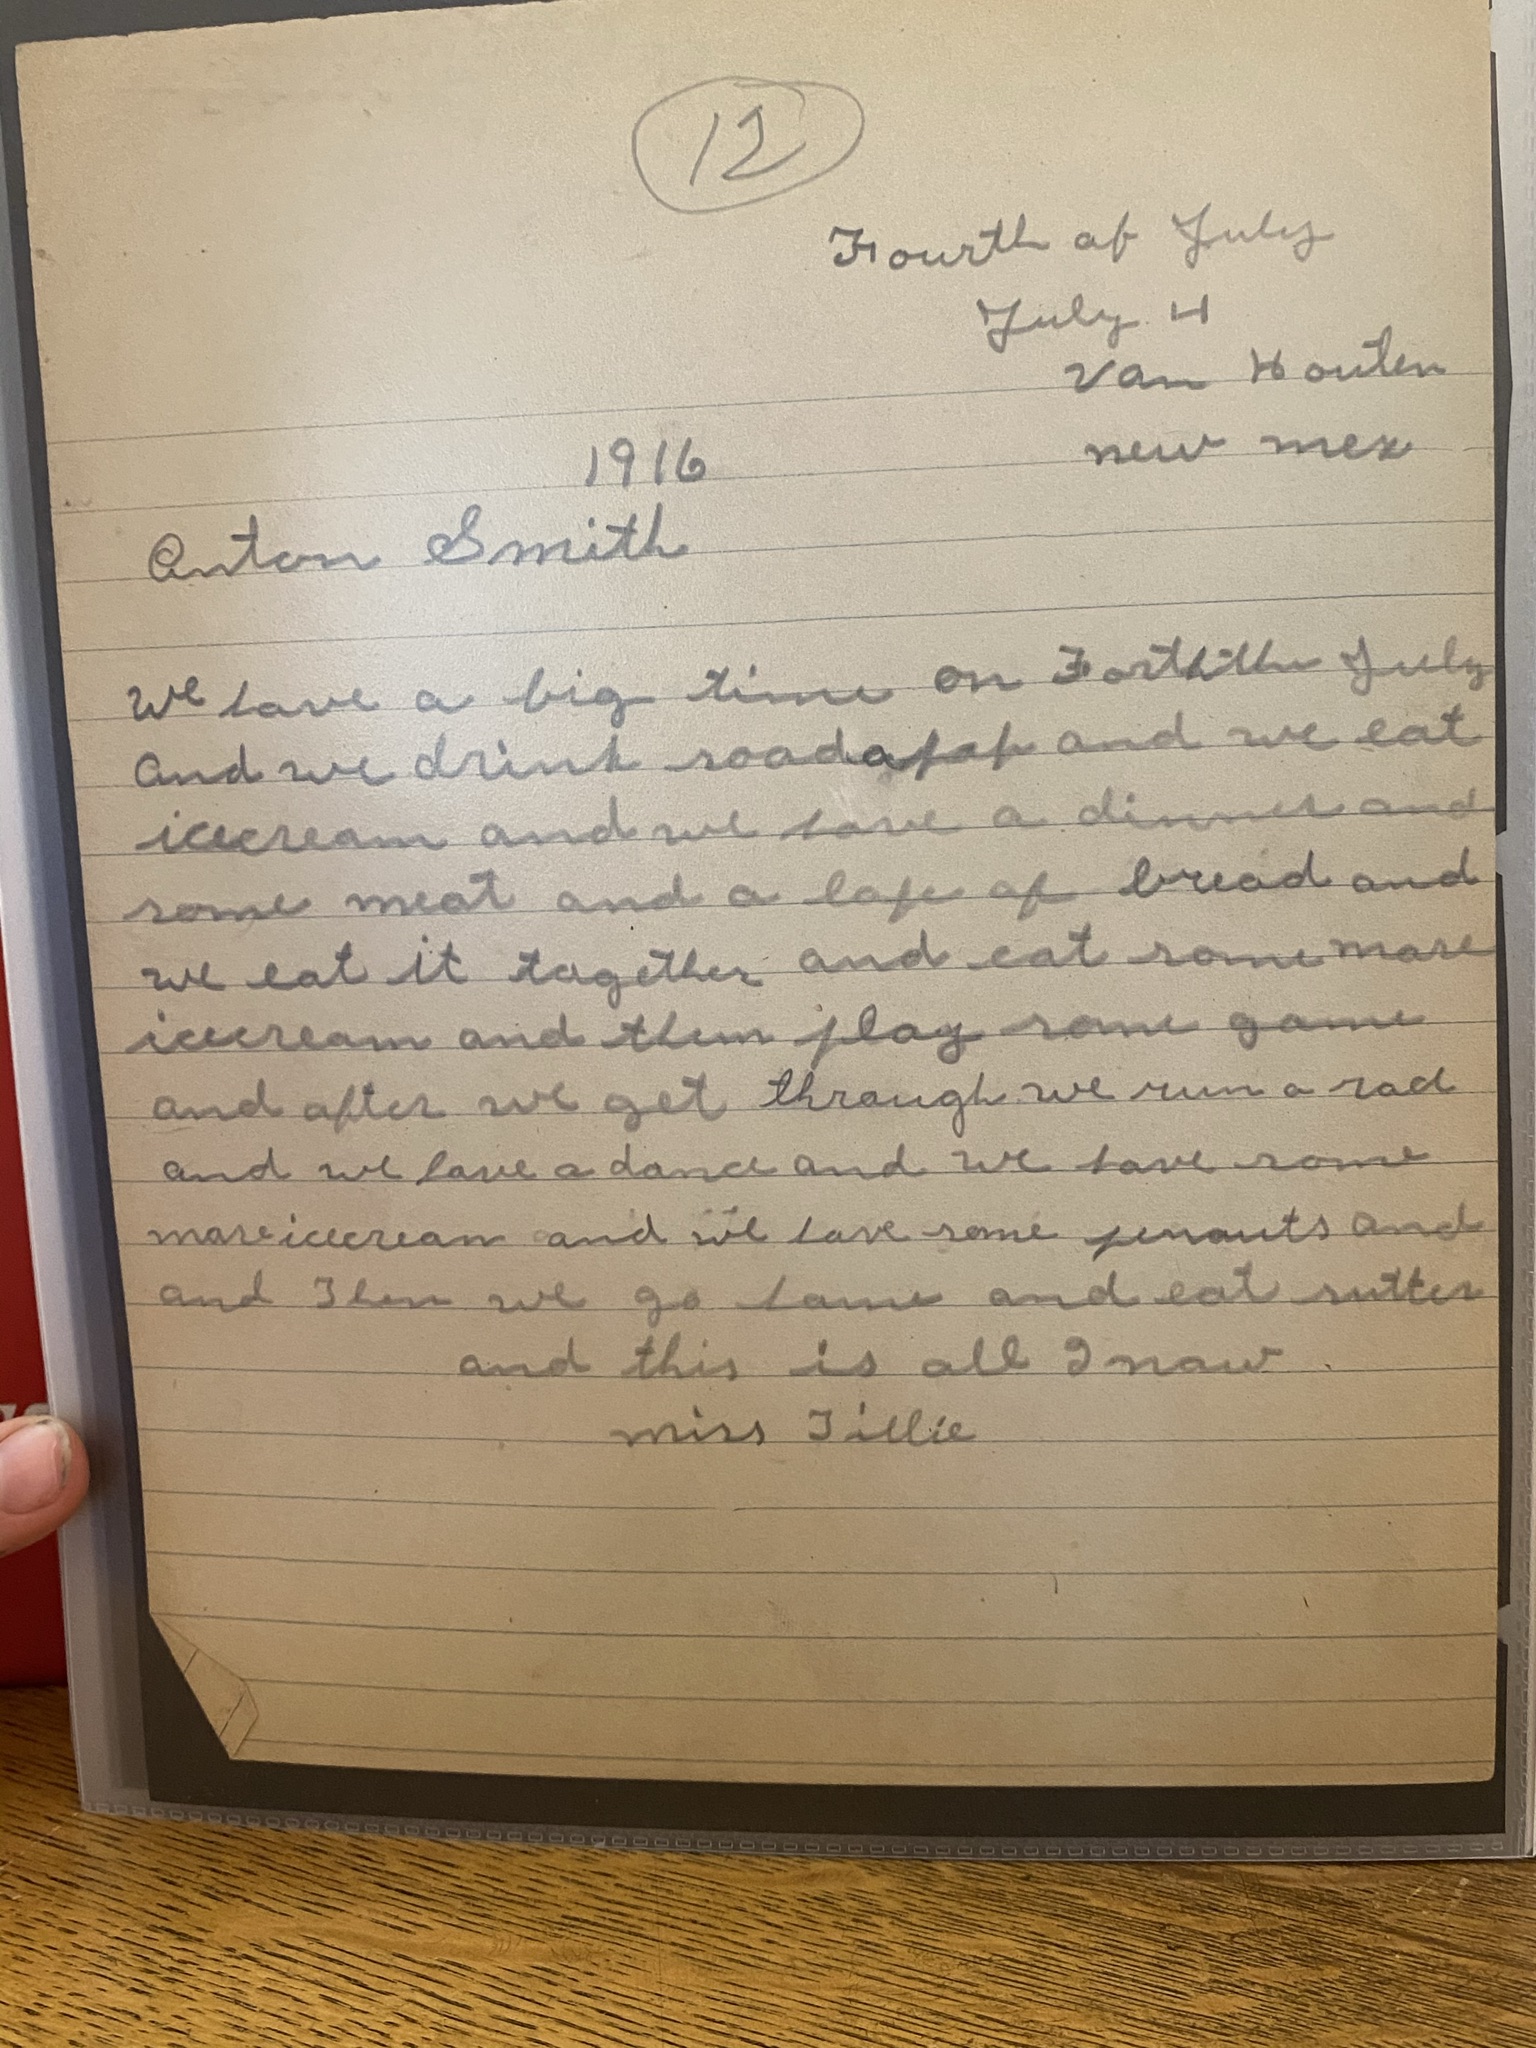 12
Fourth of July
July 4
Van Houten
new mex
1916
Anton Smith
We have a big time on Forththe July
and we drink soadapop and we eat
icecream and we have a dinner and
some meat and a lofe of bread and
we eat it together and eat some more
icecream and then play some game
and after we get through we run a rad
and we have a dance and we have some
more icecream and we have some penauts and
and Then we go home and eat sutter
and this is all I now
miss Tillie